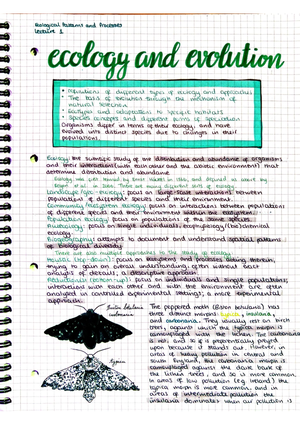 Biological Patterns and Processes
Lecture 1
ecology and evolution
• definitions of different types of ecology and approaches
• The basis of evolution through the mechanism of
natural selection
• Ecotypes and adaptations to specific habitats
• Species concepts and different forms of speciation
Organisms differ in terms of their ecology, and have
evolved into distinct species due to changes in their
populations.
Ecology: the scientific study of the distribution and abundance of organisms
and their interactions (with each other and the abiotic environment) that
determine distribution and abundance
Ecology was first named by Ernst Haeckel in 1866, and defined as above by
in There are many different sorts of ecology.
Landscape/geo-ecology: focus on large-scale interactions between
populations of different species and their environment.
Community/ecosystem ecology: focus on interactions between populations
of different species and their environment within the ecosystem.
Population ecology: focus on populations of the same species
Autecology: focus on single individuals, ecophysiology/(bio)chemical
ecology
Biogeography: attempts to document and understand spatial patterns
of biological diversity
There are also multiple approaches to the study of ecology.
Holistic (top-down): focus on ecosystems and processes, adding therein,
trying to gain an overall understanding, often without exact
analysis of details; a descriptive approach
Reductionist (bottom-up): focus on individuals and single populations;
interactions with each other and with the environment are often
analysed in controlled experimental settings; a more experimental
approach.
Biston betularia
carbonaria
typica
The peppered moth (Biston betularia) has
three distinct morphs: typica, insularia,
and carbonaria. They usually rest on birch
trees, against which the typica morph is
camouflaged with the lichen. The carbonaria
is not, and so it is preferentially preyed
upon because it stands out. However, in
areas of heavy pollution in central and
south England, the carbonaria morph is
camouflaged against the dark bark of
the lichen trees, and so is more common.
In areas of low pollution (e.g. Ireland) the
typica morph is more common, and in
areas of intermediate pollution the
insularia dominates. When air pollution is